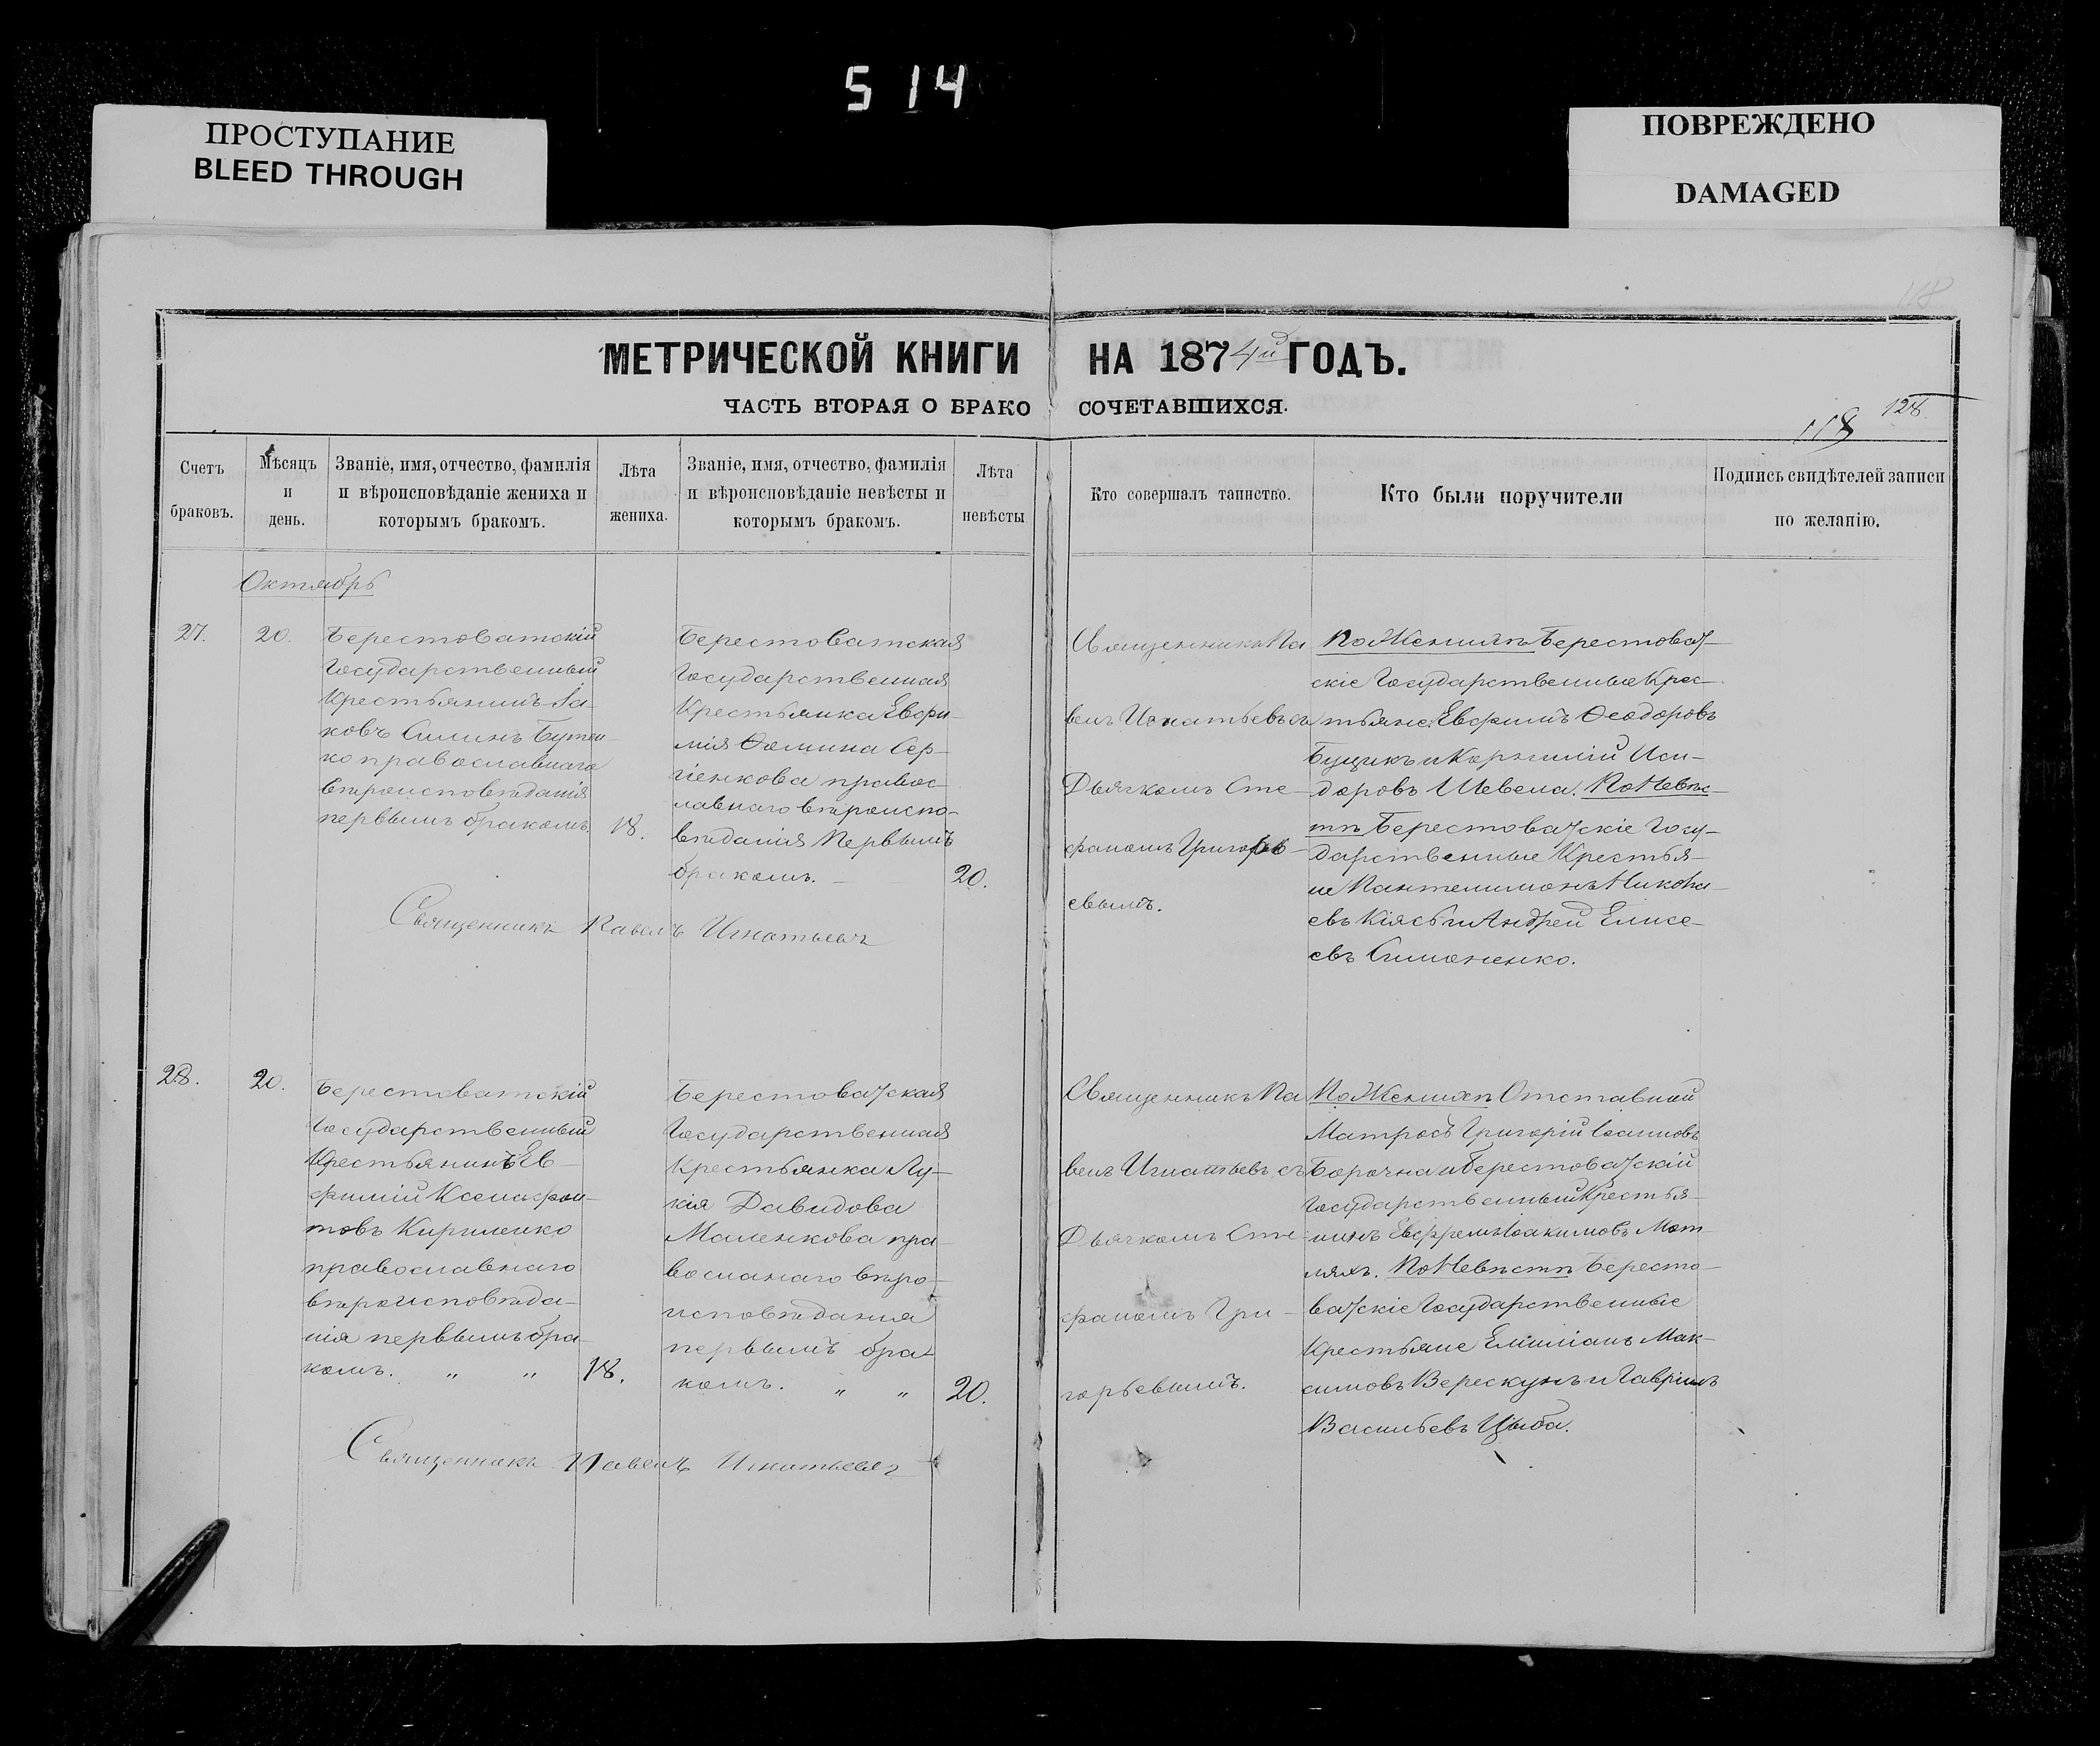 514
ПРОСТУПАНИЕ
BLEED THROUGH
ПОВРЕЖДЕНО
DAMAGED
118
МЕТРИЧЕСКОЙ КНИГИ НА 1874й ГОДЪ.
ЧАСТЬ ВТОРАЯ О БРАКОСОЧЕТАВШИХСЯ.
118 128.
Счетъ
браковъ.
Мѣсяцъ
и
день.
Званіе, имя, отчество, фамилія
и вѣроисповѣданіе жениха и
которымъ бракомъ.
Лѣта
жениха.
Званіе, имя, отчество, фамилія
и вѣроисповѣданіе невѣсты и
которымъ бракомъ.
Лѣта
невѣсты
Кто совершалъ таинство.
Кто были поручители
Подпись свидѣтелей записи
по желанію.
Октябрь
27.
20.
Берестоватскій
Государственный
Крестьянинъ Іа-
ковъ Силинъ Бутен-
ко православнаго
вѣроисповѣданія
первымъ бракомъ.
18.
Берестоватская
Государственная
Крестьянка Евфи-
мія Ѳомина Сер-
гіенкова правос-
лавнаго вѣроиспо-
вѣданія первымъ
бракомъ. —
20.
Священникъ Па
велъ Игнатьевъ съ
Дьячкомъ Сте-
фаномъ Григорь-
евымъ.
По Женихѣ Берестоват-
скіе Государственные Крес-
тьяне: Евфимъ Ѳеодоровъ
Буцикъ и Корнилій Иси-
доровъ Шевела. По Невѣс-
тѣ Берестоватскіе Госу-
дарственные Крестья-
не Пантелимонъ Никола-
евъ Кіясь и Андрей Елисе-
евъ Симоненко.
Священникъ Павелъ Игнатьевъ
28.
20.
Берестоватскій
Государственный
Крестьянинъ Ев-
фимій Ксенофон-
товъ Кириленко
православнаго
вѣроисповѣда-
нія первымъ бра-
комъ. " "
18.
Берестоватская
Государственная
Крестьянка Лу-
кія Давидова
Маленкова пра-
вославнаго вѣро-
исповѣданія
первымъ бра-
комъ. " "
20.
Священникъ Па
велъ Игнатьевъ съ
Дьячкомъ Сте-
фаномъ Гри-
горьевымъ.
По Женихѣ Отставной
Матросъ Григорій Іоанновъ
и Берестоватскій
Государственный Крестья-
нинъ Евфремъ Іоакимовъ Мот-
ляхъ. По Невѣстѣ Бересто-
ватскіе Государственные
Крестьяне Емиліанъ Мак-
симовъ Верескунъ и Гавріилъ
Васильевъ Цыба.
Священникъ Павелъ Игнатьевъ